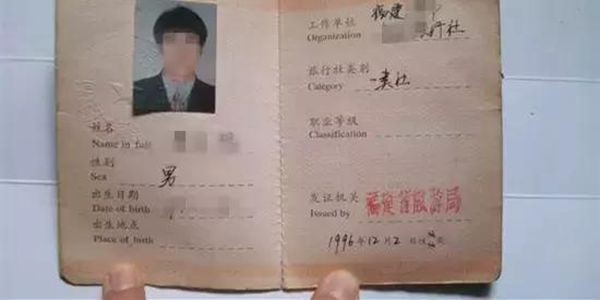 姓名
Name in full
性别
Sex 男
出生日期
Date of birth
出生地点
Place of birth
工作单位 福建
Organization 行社
旅行社类别
Category 一类社
职业等级
Classification
发证机关 福建省旅游局
Issued by
1996年12月2